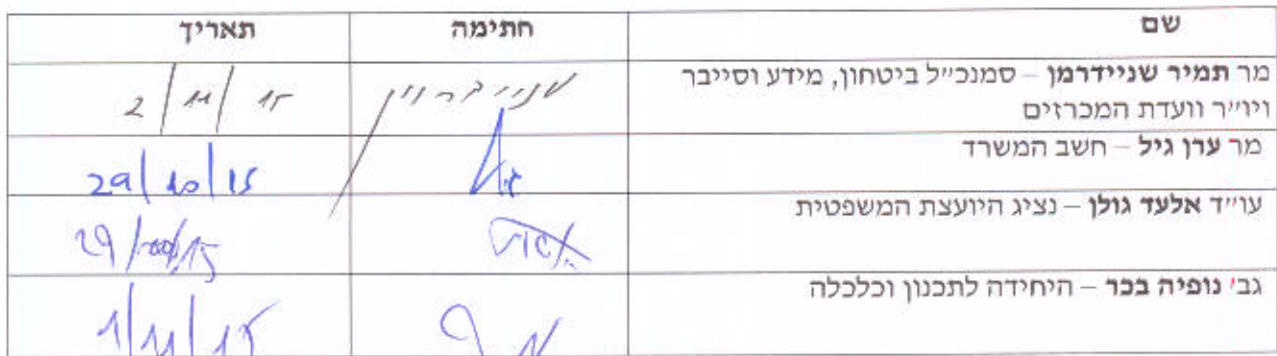 שם חתימה תאריך
מר תמיר שניידרמן – סמנכ״ל ביטחון, מידע וסייבר
ויו״ר וועדת המכרזים
2/11/15
מר ערן גיל – חשב המשרד
29/10/15
עו״ד אלעד גולן – נציג היועצת המשפטית
29/10/15
גב' נופיה בכר – היחידה לתכנון וכלכלה
1/11/15